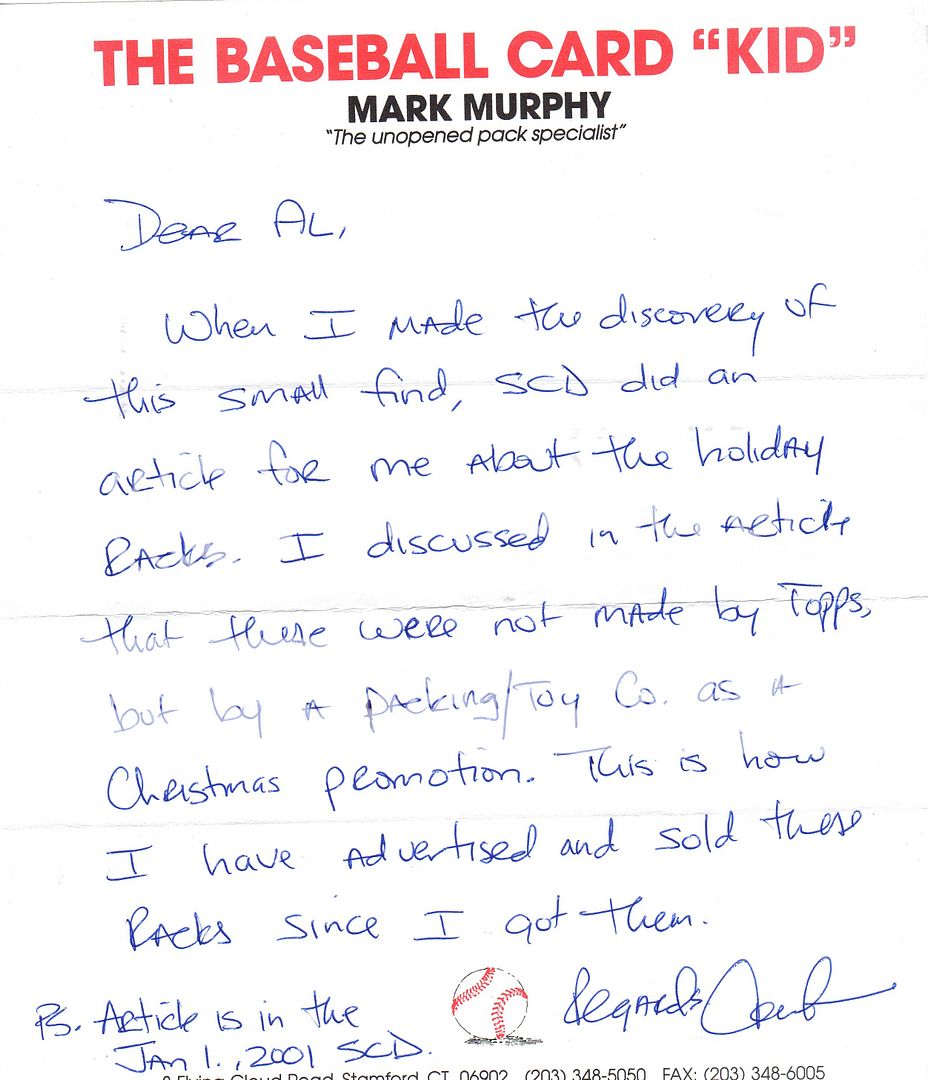 THE BASEBALL CARD “KID”
MARK MURPHY
“The unopened pack specialist”
Dear Al,
When I made the discovery of
this small find, SCD did an
article for me about the holiday
Racks. I discussed in the article
that these were not made by Topps,
but by a packing/Toy Co. as a
Christmas promotion. This is how
I have advertised and sold these
Racks since I got them.
Regards
Ps. Article is in the
Jan 1., 2001 SCD.
Flying Cloud Road, Stamford, CT 06902 (203) 348-5050 FAX: (203) 348-6005